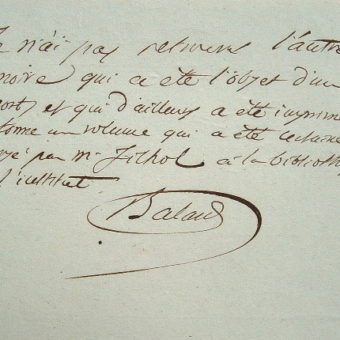 e n'ai pas retrouvé l'autre
moire qui a été l'objet d'un
port et qui d'ailleurs a été imprim
forme un volume qui a été certaine
yé par mr Filhol à la biblioth
l'institut.
Balard